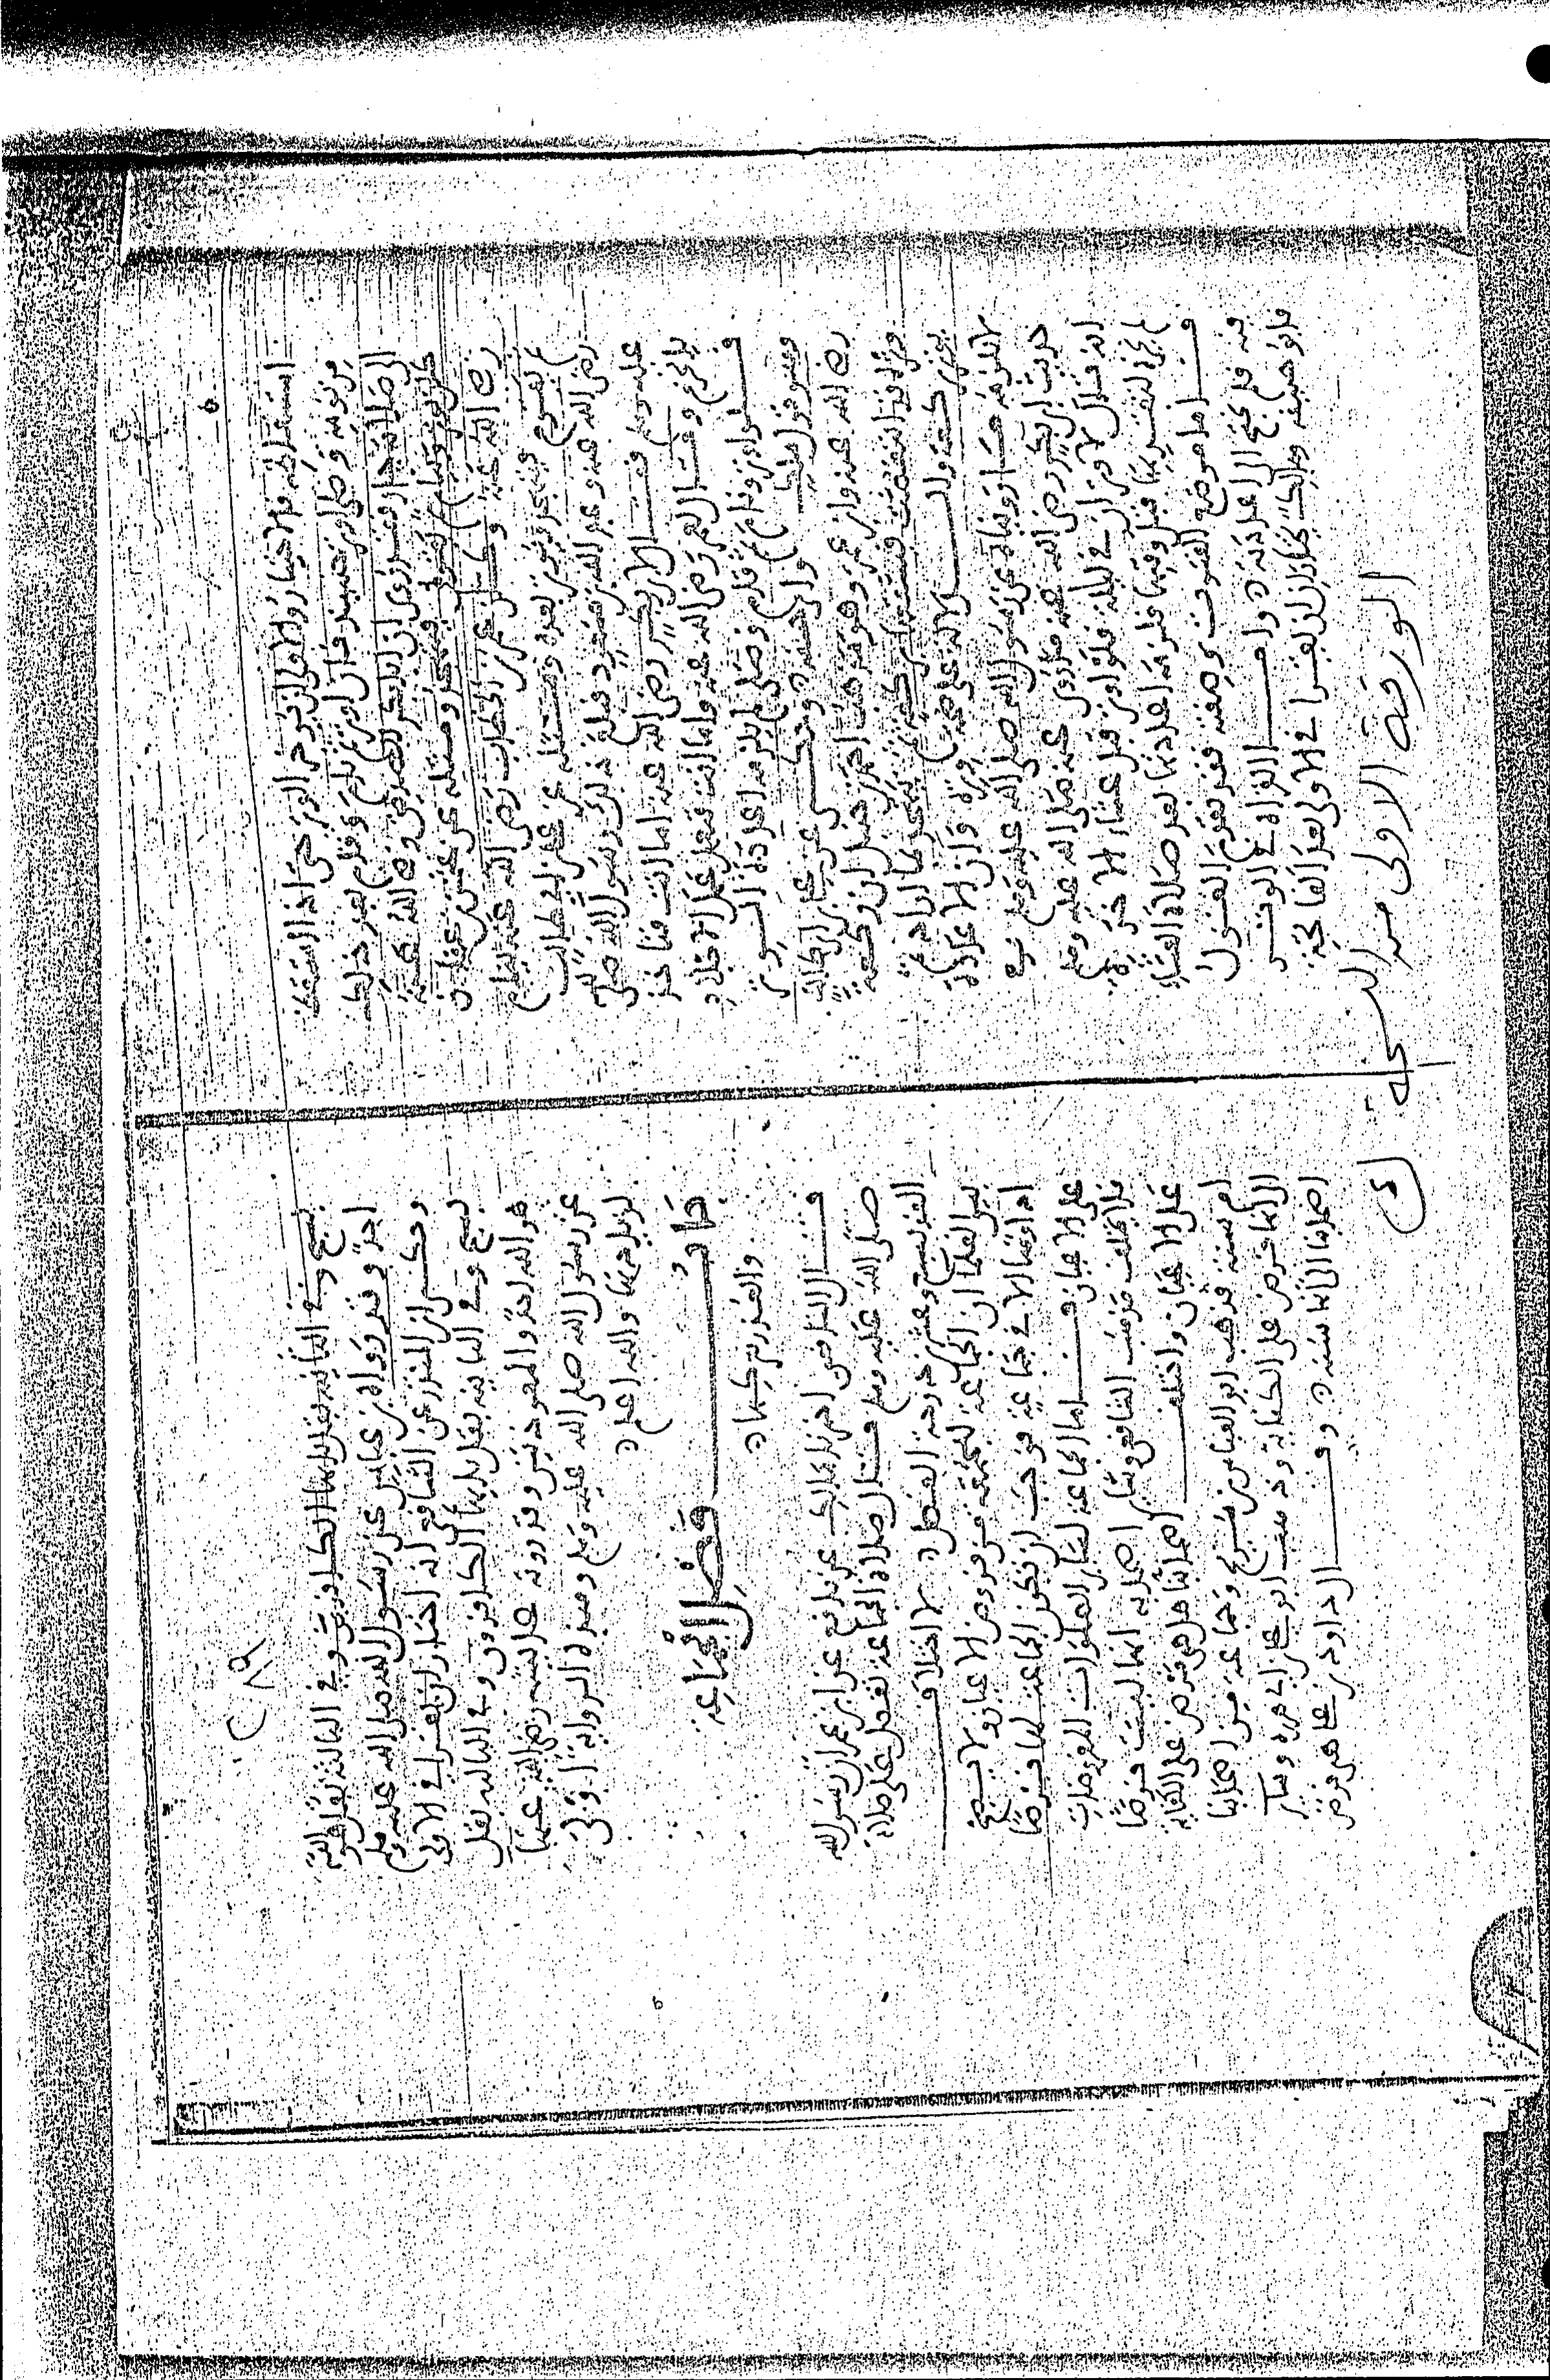 من نومه وصلى اوتر حينئذ فان اوتر ثم نام وقام بعد ذلك
الصلاة جاز وقد روي ان ابا بكر الصديق رضي الله عنه
كان يوتر وينام ثم يقوم فيتهجد ومثله عن عثمن بن عفان
رضي الله عنه وكان عمر بن الخطاب رضي الله عنه ينام
ثم يقوم فيتهجد ويوتر بعده ومثله عن علي بن ابي طالب
رضي الله عنه وعبد الله بن مسعود فبلغ ذلك رسول الله صلى الله
عليه وسلم فقال لابي بكر رضي الله عنه اما انت فتاخذ
بالحزم وقال لعمر رضي الله عنه واما انت فتعمل عمل الاجلاد
فلو اوتر ونام ثم قام وصلى لم يلزمه اعادة الوتر
وهو قول مالك وابي حنيفة وحكي عن علي بن ابي طالب
رضي الله عنه وابن عمر وهو مذهب احمد بن حنبل ان وتره
الاول قد انتقض فيشفعه بركعة ثم يتهجد بما اراد ثم
يوتر بركعة والدلالة على صحة وتره وان الاعادة
لا تلزمه ما رويناه عن رسول الله صلى الله عليه وسلم في
حديث ابي بكر رضي الله عنه وما روي عنه صلى الله عليه وسلم
انه قال لا وتران في ليلة فلو اوتر قبل عشاء الاخرة
لم يجز لتقديمها قبل وقتها فلزمه اعادتها بعد صلاة العشاء
فاما موضع القنوت وصفته فقد تقدم القول
فيه فلم يحتج الى اعادته واما القراءة في الوتر
فابو حنيفة ومالك يختاران ان يقرا في الاولى بعد الفاتحة
الورقة الاولى من الرسالة
٢٨٩
بسبح وفي الثانية بقل يا ايها الكافرون وفي الثالثة بقل هو الله
احد وقد رواه ابن عباس عن رسول الله صلى الله عليه وسلم
وحكى ابن المنذر عن الشافعي انه اختار ان يقرا في الاولى
بسبح وفي الثانية بقل يا ايها الكافرون وفي الثالثة بقل
هو الله احد والمعوذتين وقد روته عايشة رضي الله عنها
عن رسول الله صلى الله عليه وسلم وهذه الرواية اولى
لزيادتها والله اعلم
باب فضل الجماعة
والعذر بتركها
قال الشافعي اخبرنا مالك عن نافع عن ابن عمر ان رسول الله
صلى الله عليه وسلم قال صلاة الجماعة تفضل على صلاة
الفذ بسبع وعشرين درجة الفصل لا اختلاف
بين العلما ان الجماعة للجمعة من فروض الاعيان ولا يصح
اداوها الا في جماعة فوجب ان تكون الجماعة لها فرضا
على الاعيان فاما الجماعة لسائر الصلوات المفروضات
فلا يختلف مذهب الشافعي وسائر اصحابه انها ليست فرضا
على الاعيان واختلف اصحابنا هل هي فرض على الكفاية
ام سنة فذهب ابو العباس بن سريج وجماعة من اصحابنا
الى انها فرض على الكفاية وذهب ابو علي بن ابي هريرة وسائر
اصحابنا الى انها سنة وقال داود بن علي هي فرض